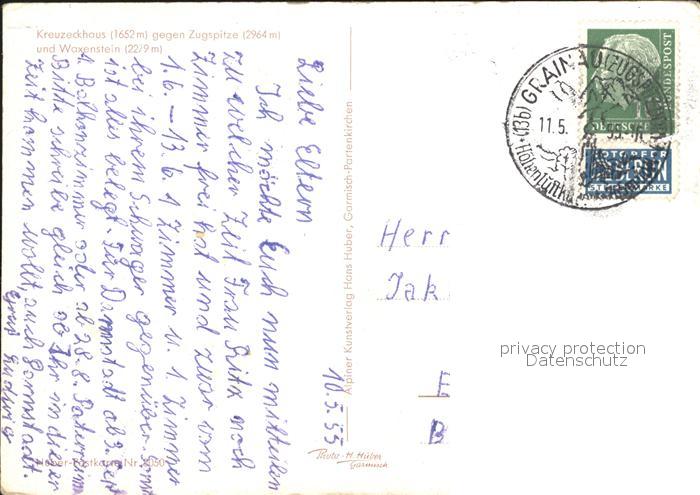 Kreuzeckhaus (1652 m) gegen Zugspitze (2964 m)
und Waxenstein (22/9 m)
Liebe Eltern
Ich möchte Euch nun mitteilen
zu welcher Zeit Frau Fritz noch
Zimmer frei hat und zwar vom
1.6. – 13.6. 1 Zimmer u. 1 Zimmer
bei ihrem Schwager gegenüber. Sonst
ist alles belegt. Für Darmstadt ab 3. Sept
1 Balkonzimmer oder ab 28.8.
Bitte schreibe gleich ob Ihr in dieser
Zeit kommen wollt, auch Darmstadt.
Gruß Ludwig
10.5.55
Huber-Postkarte Nr.
Alpiner Kunstverlag Hans Huber, Garmisch-Partenkirchen
Photo-H. Huber
Garmisch
Herr
Jak
DEUTSCHE BUNDESPOST
(13b) GRAINAU (ZUGSPITZ
Höhenluftku
11.5.
NOTOPFER
2 BERLIN
STEUERMARKE
privacy protection
Datenschutz